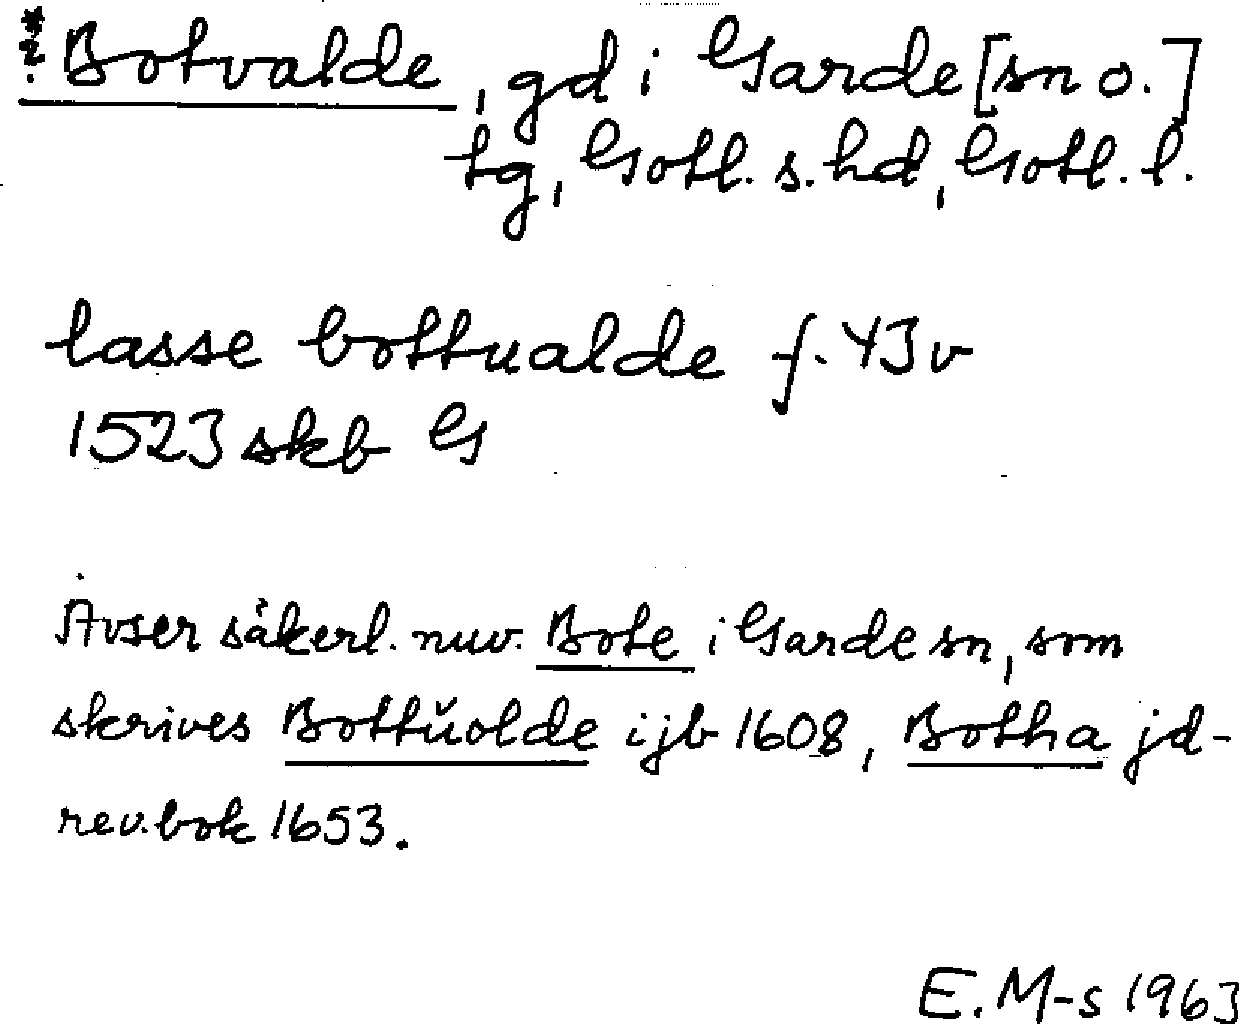 *? Botvalde, gd i Garde [sn o.]
tg, Gotl. s. hd, Gotl. l.
lasse bottualde f. 43 v
1523 skb G
Avser säkerl. nuv. Bote i Garde sn, som
skrives Bottŭolde i jb 1608, Botha jd-
rev.bok 1653.
E. M-s 1963